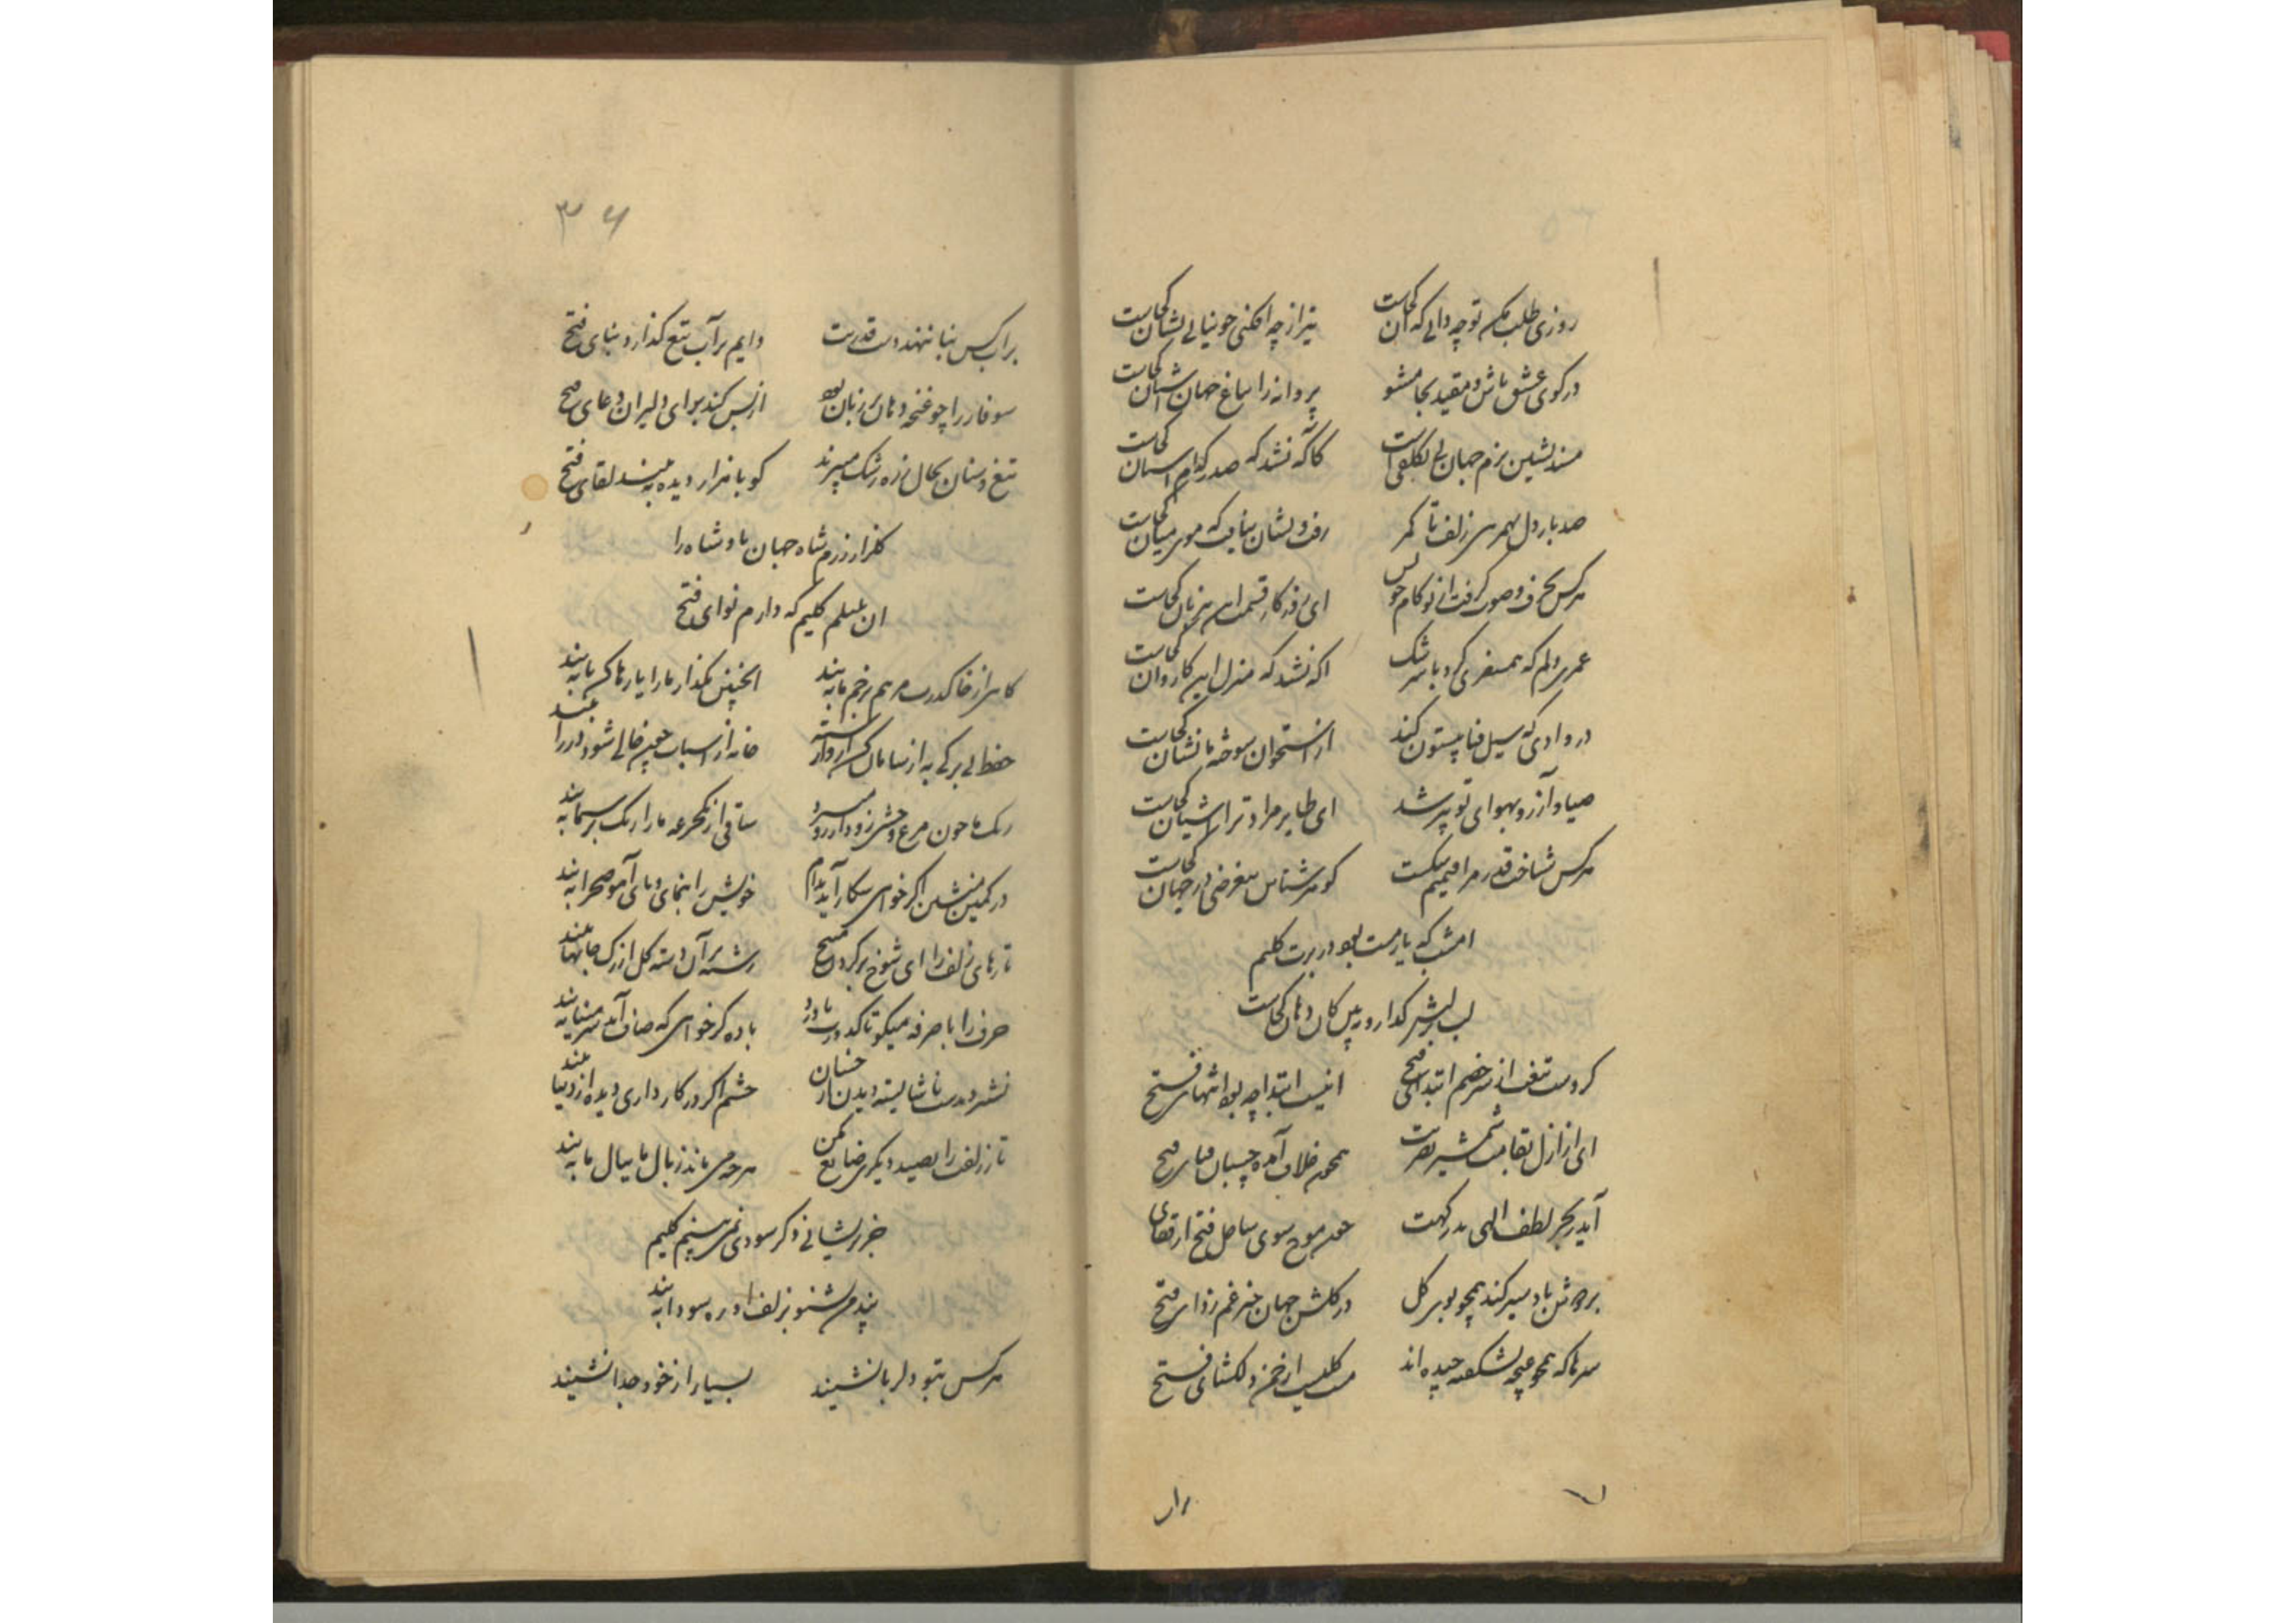 روزی طلب مکن تو چه دانی که آن کجاست
تیر از چه افکنی چو نیابی نشان کجاست
در کوی عشق باش و مقید بجا مشو
پروانه را بباغ جهان آشیان کجاست
مسند نشین بزم جهان بی تکلفی است
کاگه نشد که صدر کدام آستان کجاست
صد بار دل بهمرهی زلف تا کمر
رفت و نشان نیافت که موی میان کجاست
هر کس بحرف و صوت گرفت از تو کام خویش
ای روزگار قسمت این بیزبان کجاست
عمری دلم که همسفری کرد با سرشک
اگه نشد که منزل این کاروان کجاست
در وادی که سیل فنا بیستون کند
از استخوان سوخته ما نشان کجاست
صیاد آرزو بهوای تو پیر شد
ای طایر مراد ترا آشیان کجاست
هر کس شناخت قدر مرا قیمتم شکست
گوهرشناس بیغرضی در جهان کجاست
امشب که یار مست بود در برت کلیم
لب بر لبش گذار و مپرس کان دهان کجاست
کردست تیغت از سر خضم ابتدای فتح
اینست ابتدا چه بود انتهای فتح
ای از ازل بقامت شمشیر نصرتت
همچون غلاف آمده چسبان قبای فتح
آید ز بحر لطف الهی بدرگهت
چون موج سوی ساحل فتح از قفای
بر دوش باد سیر کند همچو بوی گل
در گلشن جهان خبر غم زدای فتح
سرها که همچو غنچه نشکفته چیده اند
را
۳۶
بر آب کس بنا ننهد دست قدرتت
دایم بر آب تیغ گذارد بنای فتح
سوفار را چو غنچه دهان بیزبان بود
از بس کند برای دلیران دعای فتح
تیغ و سنان بحال زره رشک میبرند
کو با هزار دیده ببیند لقای فتح
گلزار رزم شاه جهان پادشاه را
ان بلبلم کلیم که دارم نوای فتح
گاهی از خاک درت مرهم بزخم ما ببند
اینچنین مگذار ما را یا رها کن یا ببند
خانه از اسباب چون خالی شود در را ببند
رنگ ما چون مرغ وحشی زود از رو میرود
ساقی از یکجرعه ما را رنگ بر سیما ببند
در کمین منشین اگر خواهی شکار آید بدام
خویش را بنمای و پای آهو صحرا ببند
تارهای زلف را ای شوخ بر گرد رخ
رشته بر آن دسته گل از رگ جانها ببند
حرف را با صرفه میگو تا کدورت ناورد
باده گر خواهی که صاف آید سر مینا ببند
چشم اگر در کار داری دیده از دنیا ببند
تار زلفت را بصید دیگری ضایع مکن
هر چه می ماند ز بال ما ببال ما ببند
جز پریشانی دگر سودی نمی بینم کلیم
پند من مشنو بزلف او ره سودا ببند
هر کس بتو دلربا نشیند
بسیار از خود جدا نشیند